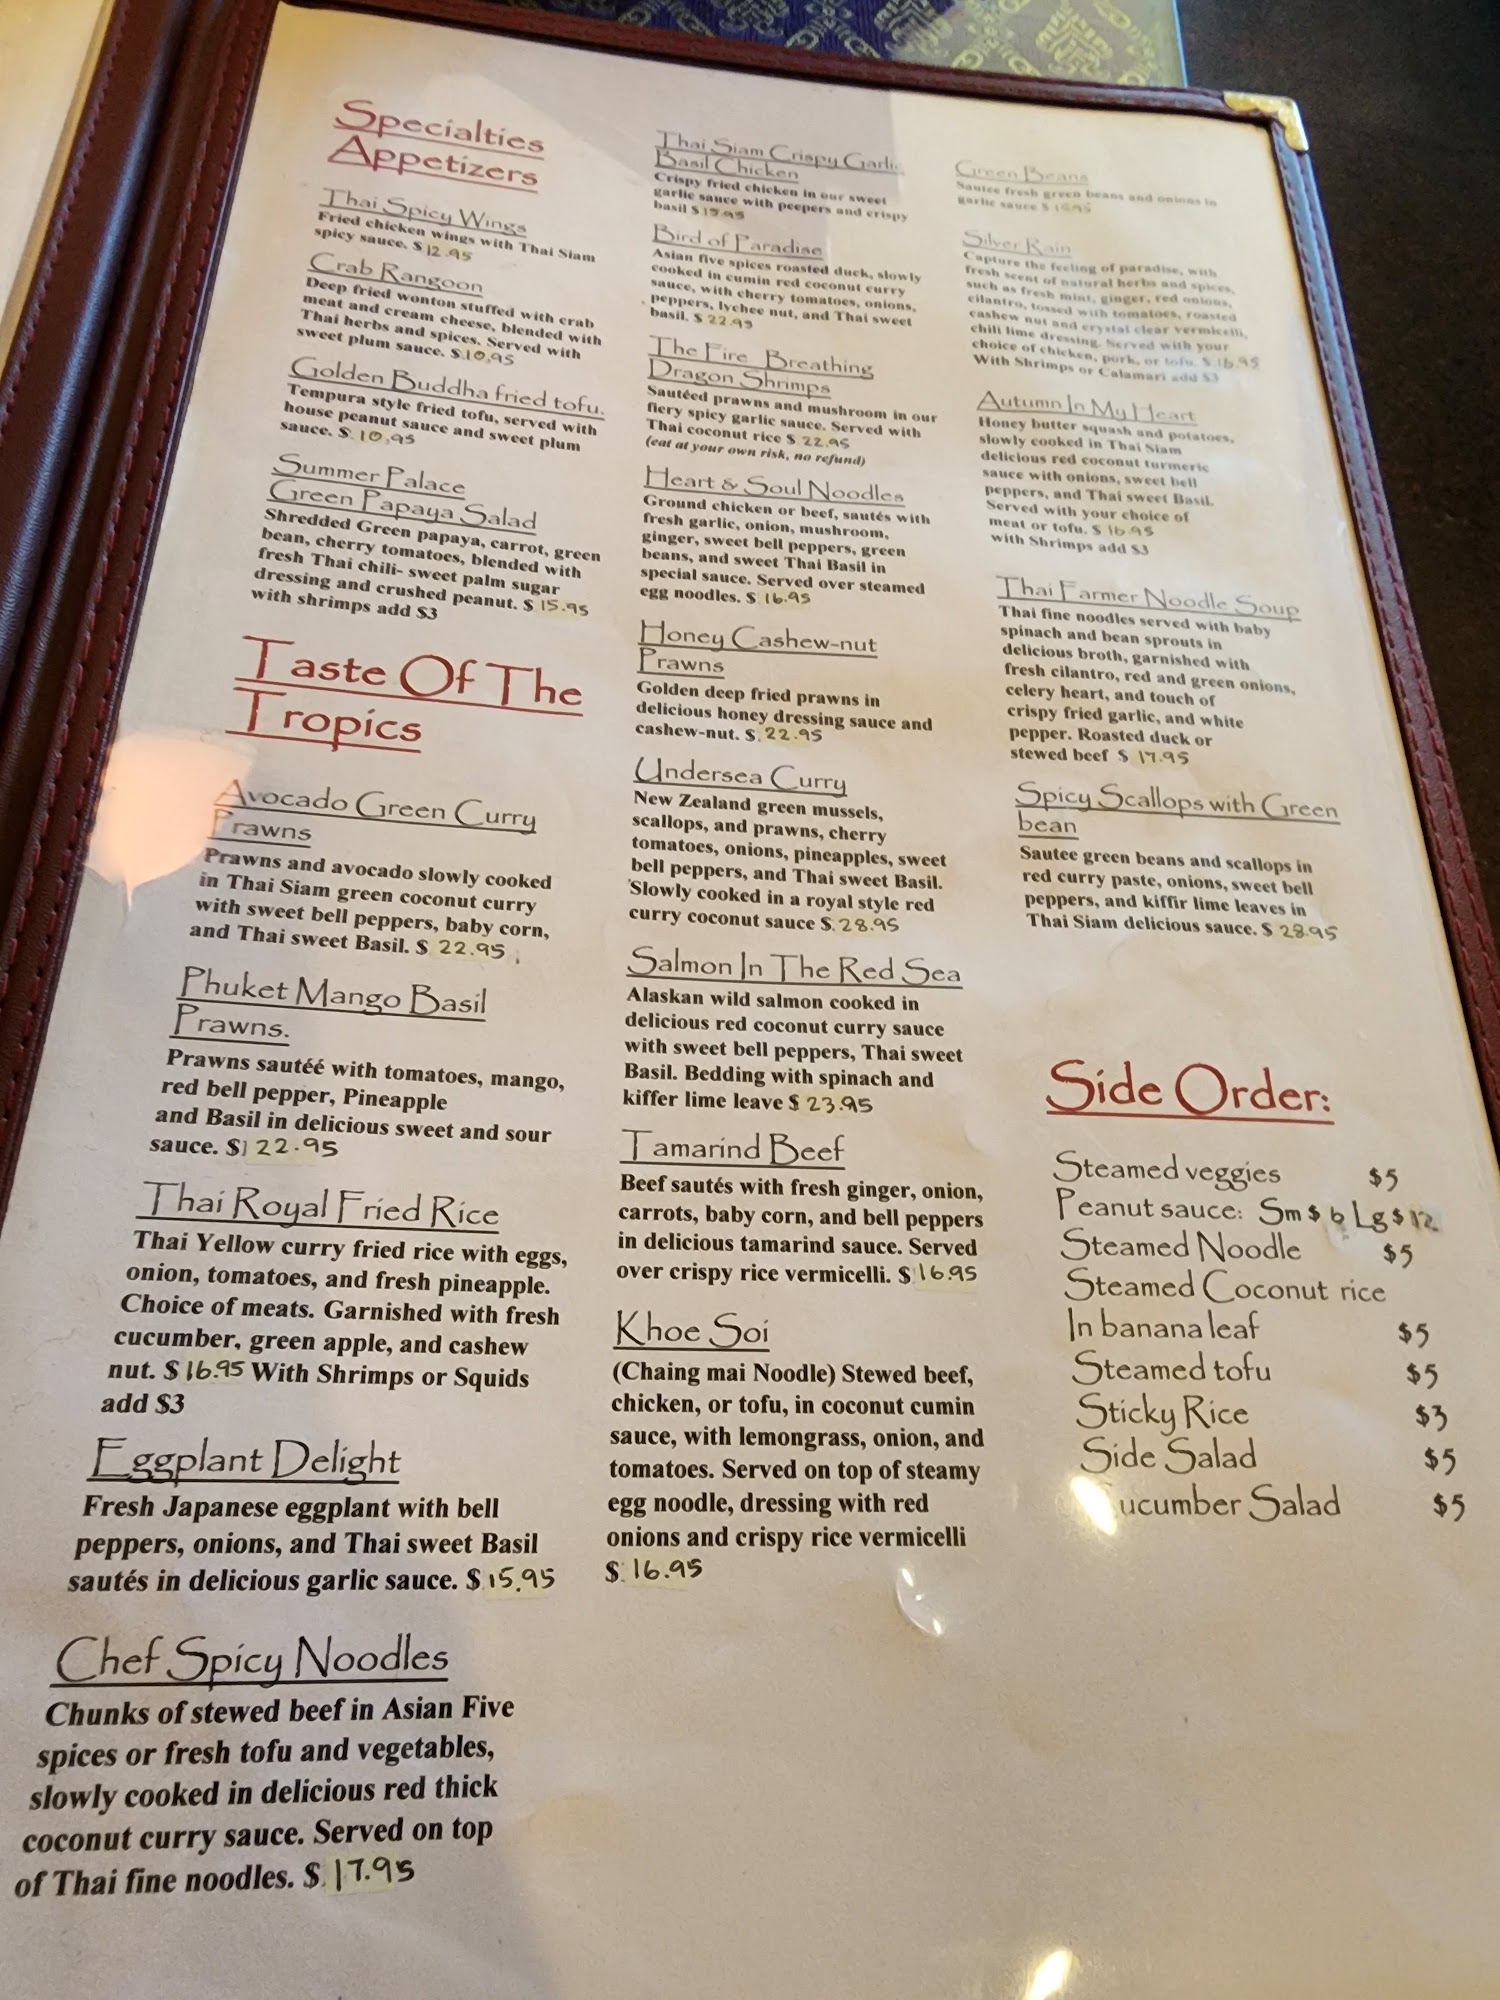 Specialties
Appetizers
Thai Spicy Wings
Fried chicken wings with Thai Siam
spicy sauce. $ 12.95
Crab Rangoon
Deep fried wonton stuffed with crab
meat and cream cheese, blended with
Thai herbs and spices. Served with
sweet plum sauce. $ 10.95
Golden Buddha fried tofu.
Tempura style fried tofu, served with
house peanut sauce and sweet plum
sauce. $ 10.95
Summer Palace
Green Papaya Salad
Shredded Green papaya, carrot, green
bean, cherry tomatoes, blended with
fresh Thai chili- sweet palm sugar
dressing and crushed peanut. $ 15.95
with shrimps add $3
Taste Of The
Tropics
Avocado Green Curry
Prawns
Prawns and avocado slowly cooked
in Thai Siam green coconut curry
with sweet bell peppers, baby corn,
and Thai sweet Basil. $ 22.95
Phuket Mango Basil
Prawns.
Prawns sautéé with tomatoes, mango,
red bell pepper, Pineapple
and Basil in delicious sweet and sour
sauce. $ 22.95
Thai Royal Fried Rice
Thai Yellow curry fried rice with eggs,
onion, tomatoes, and fresh pineapple.
Choice of meats. Garnished with fresh
cucumber, green apple, and cashew
nut. $ 16.95 With Shrimps or Squids
add $3
Eggplant Delight
Fresh Japanese eggplant with bell
peppers, onions, and Thai sweet Basil
sautés in delicious garlic sauce. $ 15.95
Chef Spicy Noodles
Chunks of stewed beef in Asian Five
spices or fresh tofu and vegetables,
slowly cooked in delicious red thick
coconut curry sauce. Served on top
of Thai fine noodles. $ 17.95
Thai Siam Crispy Garlic
Basil Chicken
Crispy fried chicken in our sweet
garlic sauce with peepers and crispy
basil $
Bird of Paradise
Asian five spices roasted duck, slowly
cooked in cumin red coconut curry
sauce, with cherry tomatoes, onions,
peppers, lychee nut, and Thai sweet
basil. $ 22.95
The Fire Breathing
Dragon Shrimps
Sautéed prawns and mushroom in our
fiery spicy garlic sauce. Served with
Thai coconut rice $ 22.95
(eat at your own risk, no refund)
Heart & Soul Noodles
Ground chicken or beef, sautés with
fresh garlic, onion, mushroom,
ginger, sweet bell peppers, green
beans, and sweet Thai Basil in
special sauce. Served over steamed
egg noodles. $ 16.95
Honey Cashew-nut
Prawns
Golden deep fried prawns in
delicious honey dressing sauce and
cashew-nut. $. 22.95
Undersea Curry
New Zealand green mussels,
scallops, and prawns, cherry
tomatoes, onions, pineapples, sweet
bell peppers, and Thai sweet Basil.
Slowly cooked in a royal style red
curry coconut sauce $. 28.95
Salmon In The Red Sea
Alaskan wild salmon cooked in
delicious red coconut curry sauce
with sweet bell peppers, Thai sweet
Basil. Bedding with spinach and
kiffer lime leave $ 23.95
Tamarind Beef
Beef sautés with fresh ginger, onion,
carrots, baby corn, and bell peppers
in delicious tamarind sauce. Served
over crispy rice vermicelli. $ 16.95
Khoe Soi
(Chaing mai Noodle) Stewed beef,
chicken, or tofu, in coconut cumin
sauce, with lemongrass, onion, and
tomatoes. Served on top of steamy
egg noodle, dressing with red
onions and crispy rice vermicelli
$. 16.95
Green Beans
Sautee fresh green beans and onions in
garlic sauce $
Silver Rain
Capture the feeling of paradise, with
fresh scent of natural herbs and spices,
such as fresh mint, ginger, red onions,
cilantro, tossed with tomatoes, roasted
cashew nut and crystal clear vermicelli,
chili lime dressing. Served with your
choice of chicken, pork, or tofu. $ 16.95
With Shrimps or Calamari add $3
Autumn In My Heart
Honey butter squash and potatoes,
slowly cooked in Thai Siam
delicious red coconut turmeric
sauce with onions, sweet bell
peppers, and Thai sweet Basil.
Served with your choice of
meat or tofu. $ 16.95
with Shrimps add $3
Thai Farmer Noodle Soup
Thai fine noodles served with baby
spinach and bean sprouts in
delicious broth, garnished with
fresh cilantro, red and green onions,
celery heart, and touch of
crispy fried garlic, and white
pepper. Roasted duck or
stewed beef $ 17.95
Spicy Scallops with Green
bean
Sautee green beans and scallops in
red curry paste, onions, sweet bell
peppers, and kiffir lime leaves in
Thai Siam delicious sauce. $ 28.95
Side Order:
Steamed veggies $5
Peanut sauce: Sm $ 6 Lg $ 12
Steamed Noodle $5
Steamed Coconut rice
In banana leaf $5
Steamed tofu $5
Sticky Rice $3
Side Salad $5
Cucumber Salad $5